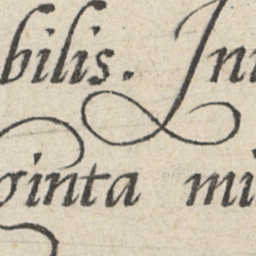 bilis. Ini
ginta mi